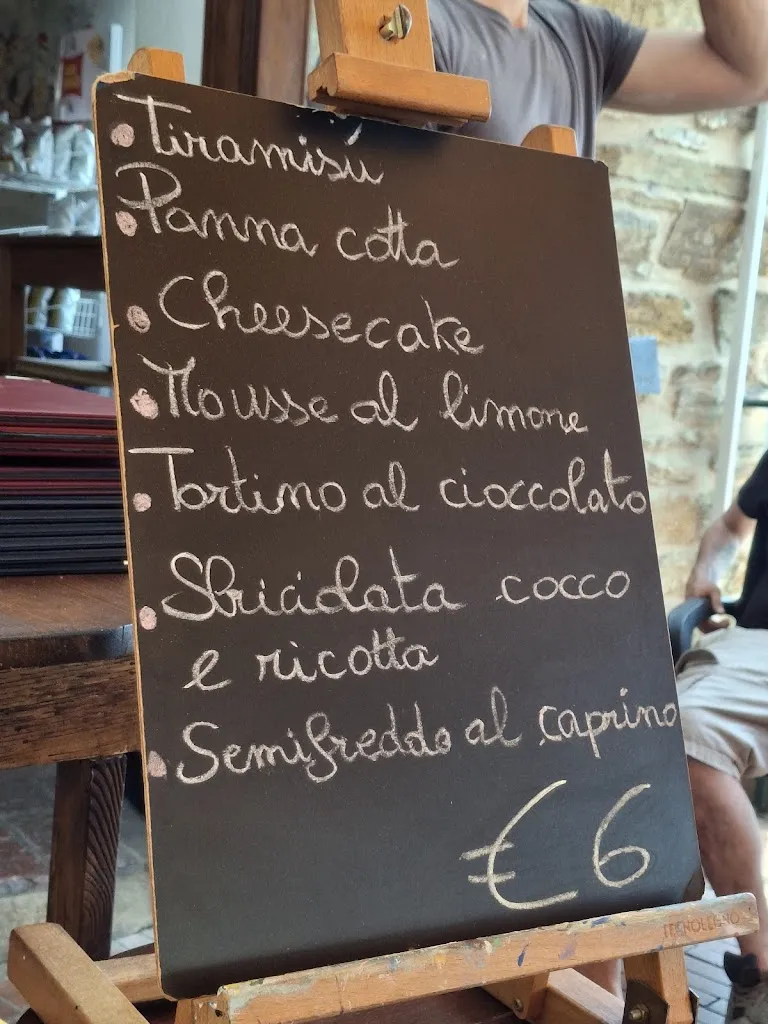 Tiramisù
Panna cotta
Cheesecake
Mousse al limone
Tortino al cioccolato
Sbriciolata cocco
e ricotta
Semifreddo al caprino
€6
TECNOLEGNO